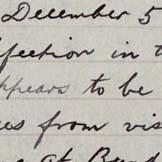 December 5
fection in t
ppears to be
es from vis
at